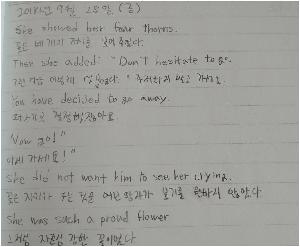 2017년 9월 28일 (목)
She showed her four thorns.
꽃은 네 개의 가시를 보여 주었다.
Then she added: "Don't hesitate to go.
그런 다음
You have decided to go away.
떠나기로 결정했잖아요.
Now go!"
이제 가세요!"
She did not want him to see her crying.
꽃은 자기가 우는 것을 어린 왕자가 보기를 원하지 않았다.
She was such a proud flower
그처럼 자존심 강한 꽃이었다